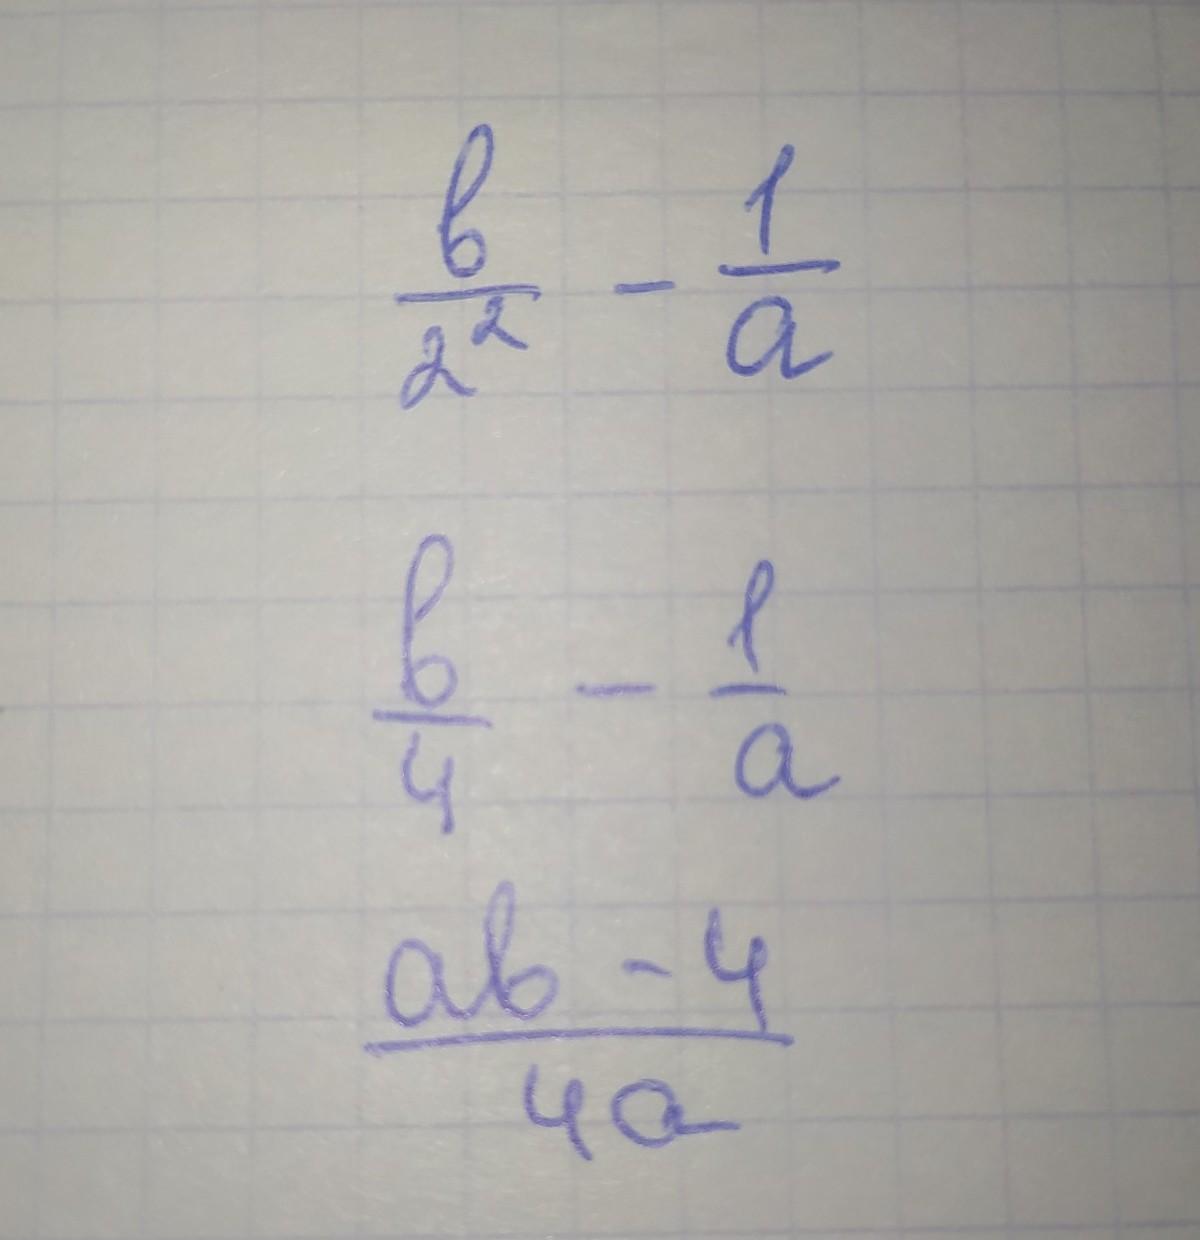 b/2² - 1/a
b/4 - 1/a
ab - 4/4a